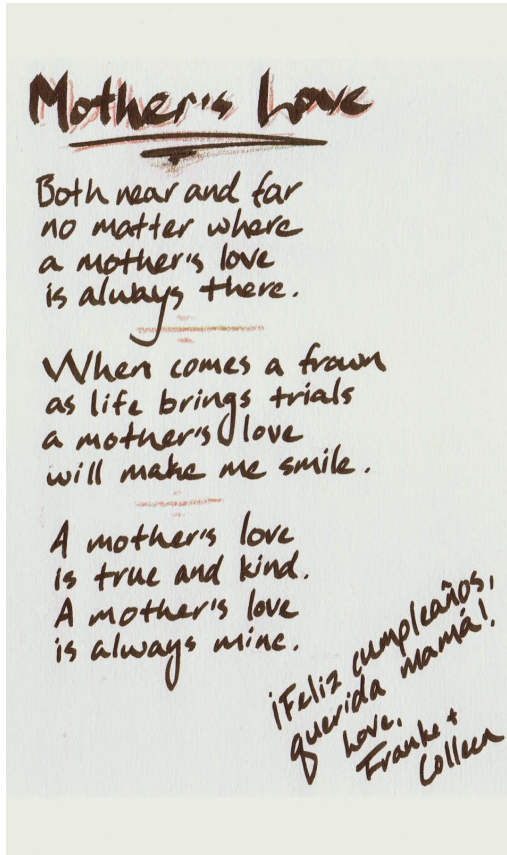 Mother's Love
Both near and far
no matter where
a mother's love
is always there.
When comes a frown
as life brings trials
a mother's love
will make me smile.
A mother's love
is true and kind.
A mother's love
is always mine.
¡Feliz cumpleaños,
querida mamá!
Love,
Franke +
Colleen